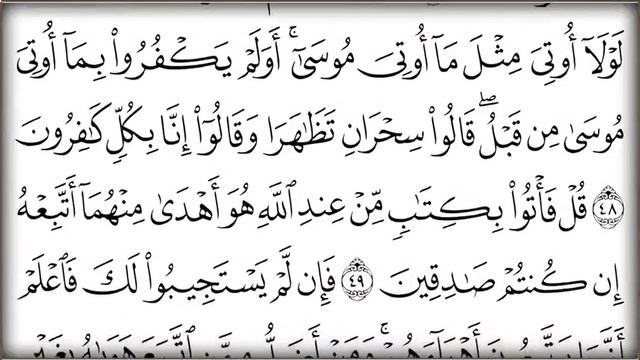 لَوْلَآ أُوتِيَ مِثْلَ مَآ أُوتِيَ مُوسَىٰٓ ۚ أَوَلَمْ يَكْفُرُوا۟ بِمَآ أُوتِيَ
مُوسَىٰ مِن قَبْلُ ۖ قَالُوا۟ سِحْرَانِ تَظَـٰهَرَا وَقَالُوٓا۟ إِنَّا بِكُلٍّ كَـٰفِرُونَ
﴿٤٨﴾ قُلْ فَأْتُوا۟ بِكِتَـٰبٍ مِّنْ عِندِ ٱللَّهِ هُوَ أَهْدَىٰ مِنْهُمَآ أَتَّبِعْهُ
إِن كُنتُمْ صَـٰدِقِينَ ﴿٤٩﴾ فَإِن لَّمْ يَسْتَجِيبُوا۟ لَكَ فَٱعْلَمْ